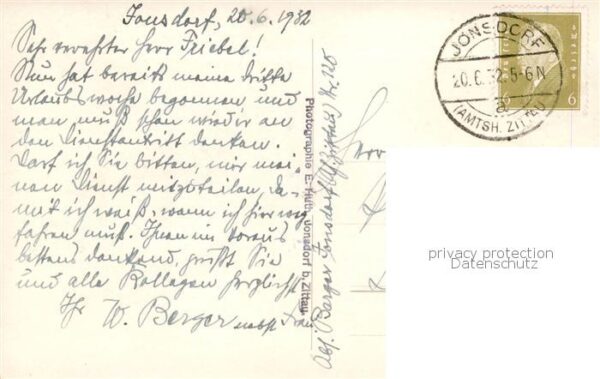 Jonsdorf, 20.6.1932
Sehr verehrter Herr Friebel!
Nun hat bereits meine dritte
Urlaubswoche begonnen, und
man muß schon wieder an
den Dienstantritt denken.
Darf ich Sie bitten, mir mei-
nen Dienst mitzuteilen, da-
mit ich weiß, wann ich hier weg
fahren muß. Ihnen im voraus
bestens dankend, grüßt Sie
und alle Kollegen herzlichst
Ihr W. Berger nebst Frau
Photographie E. Huth, Jonsdorf b. Zittau
Abs. Berger Jonsdorf (Zittau) Nr. 120
Herrn
JONSDORF
20.6.32.5-6N
a
(AMTSH. ZITTAU)
6
6
privacy protection
Datenschutz